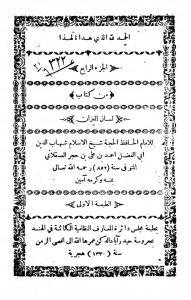 الحمد لله الذي هدانا لهذا
الجزء الرابع
من كتاب
لسان الميزان
للامام الحافظ الحجة شيخ الاسلام شهاب الدين
ابي الفضل احمد بن علي بن حجر العسقلاني
المتوفى سنة (٨٥٢) رحمه الله تعالى
بمنه وكرمه آمين
الطبعة الاولى
بمطبعة مجلس دائرة المعارف النظامية الكائنة في الهند
بمحروسة حيدرآباد الدكن عمرها الله الى اقصى الزمن
سنة (١٣٣٠) هجرية